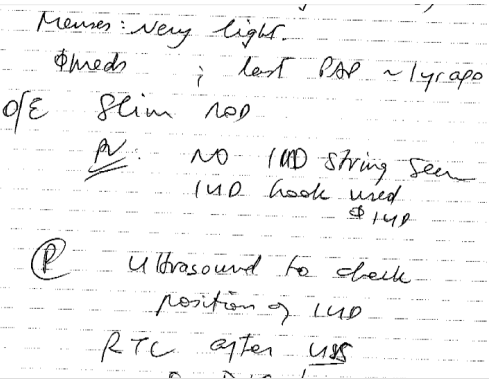 Menses: Very light.
∅meds ; last PAP ~1yr ago
O/E Slim NAD
PV: NO IUD string seen
IUD hook used
∅ IUD
Ⓟ Ultrasound to check
position of IUD
RTC after USS